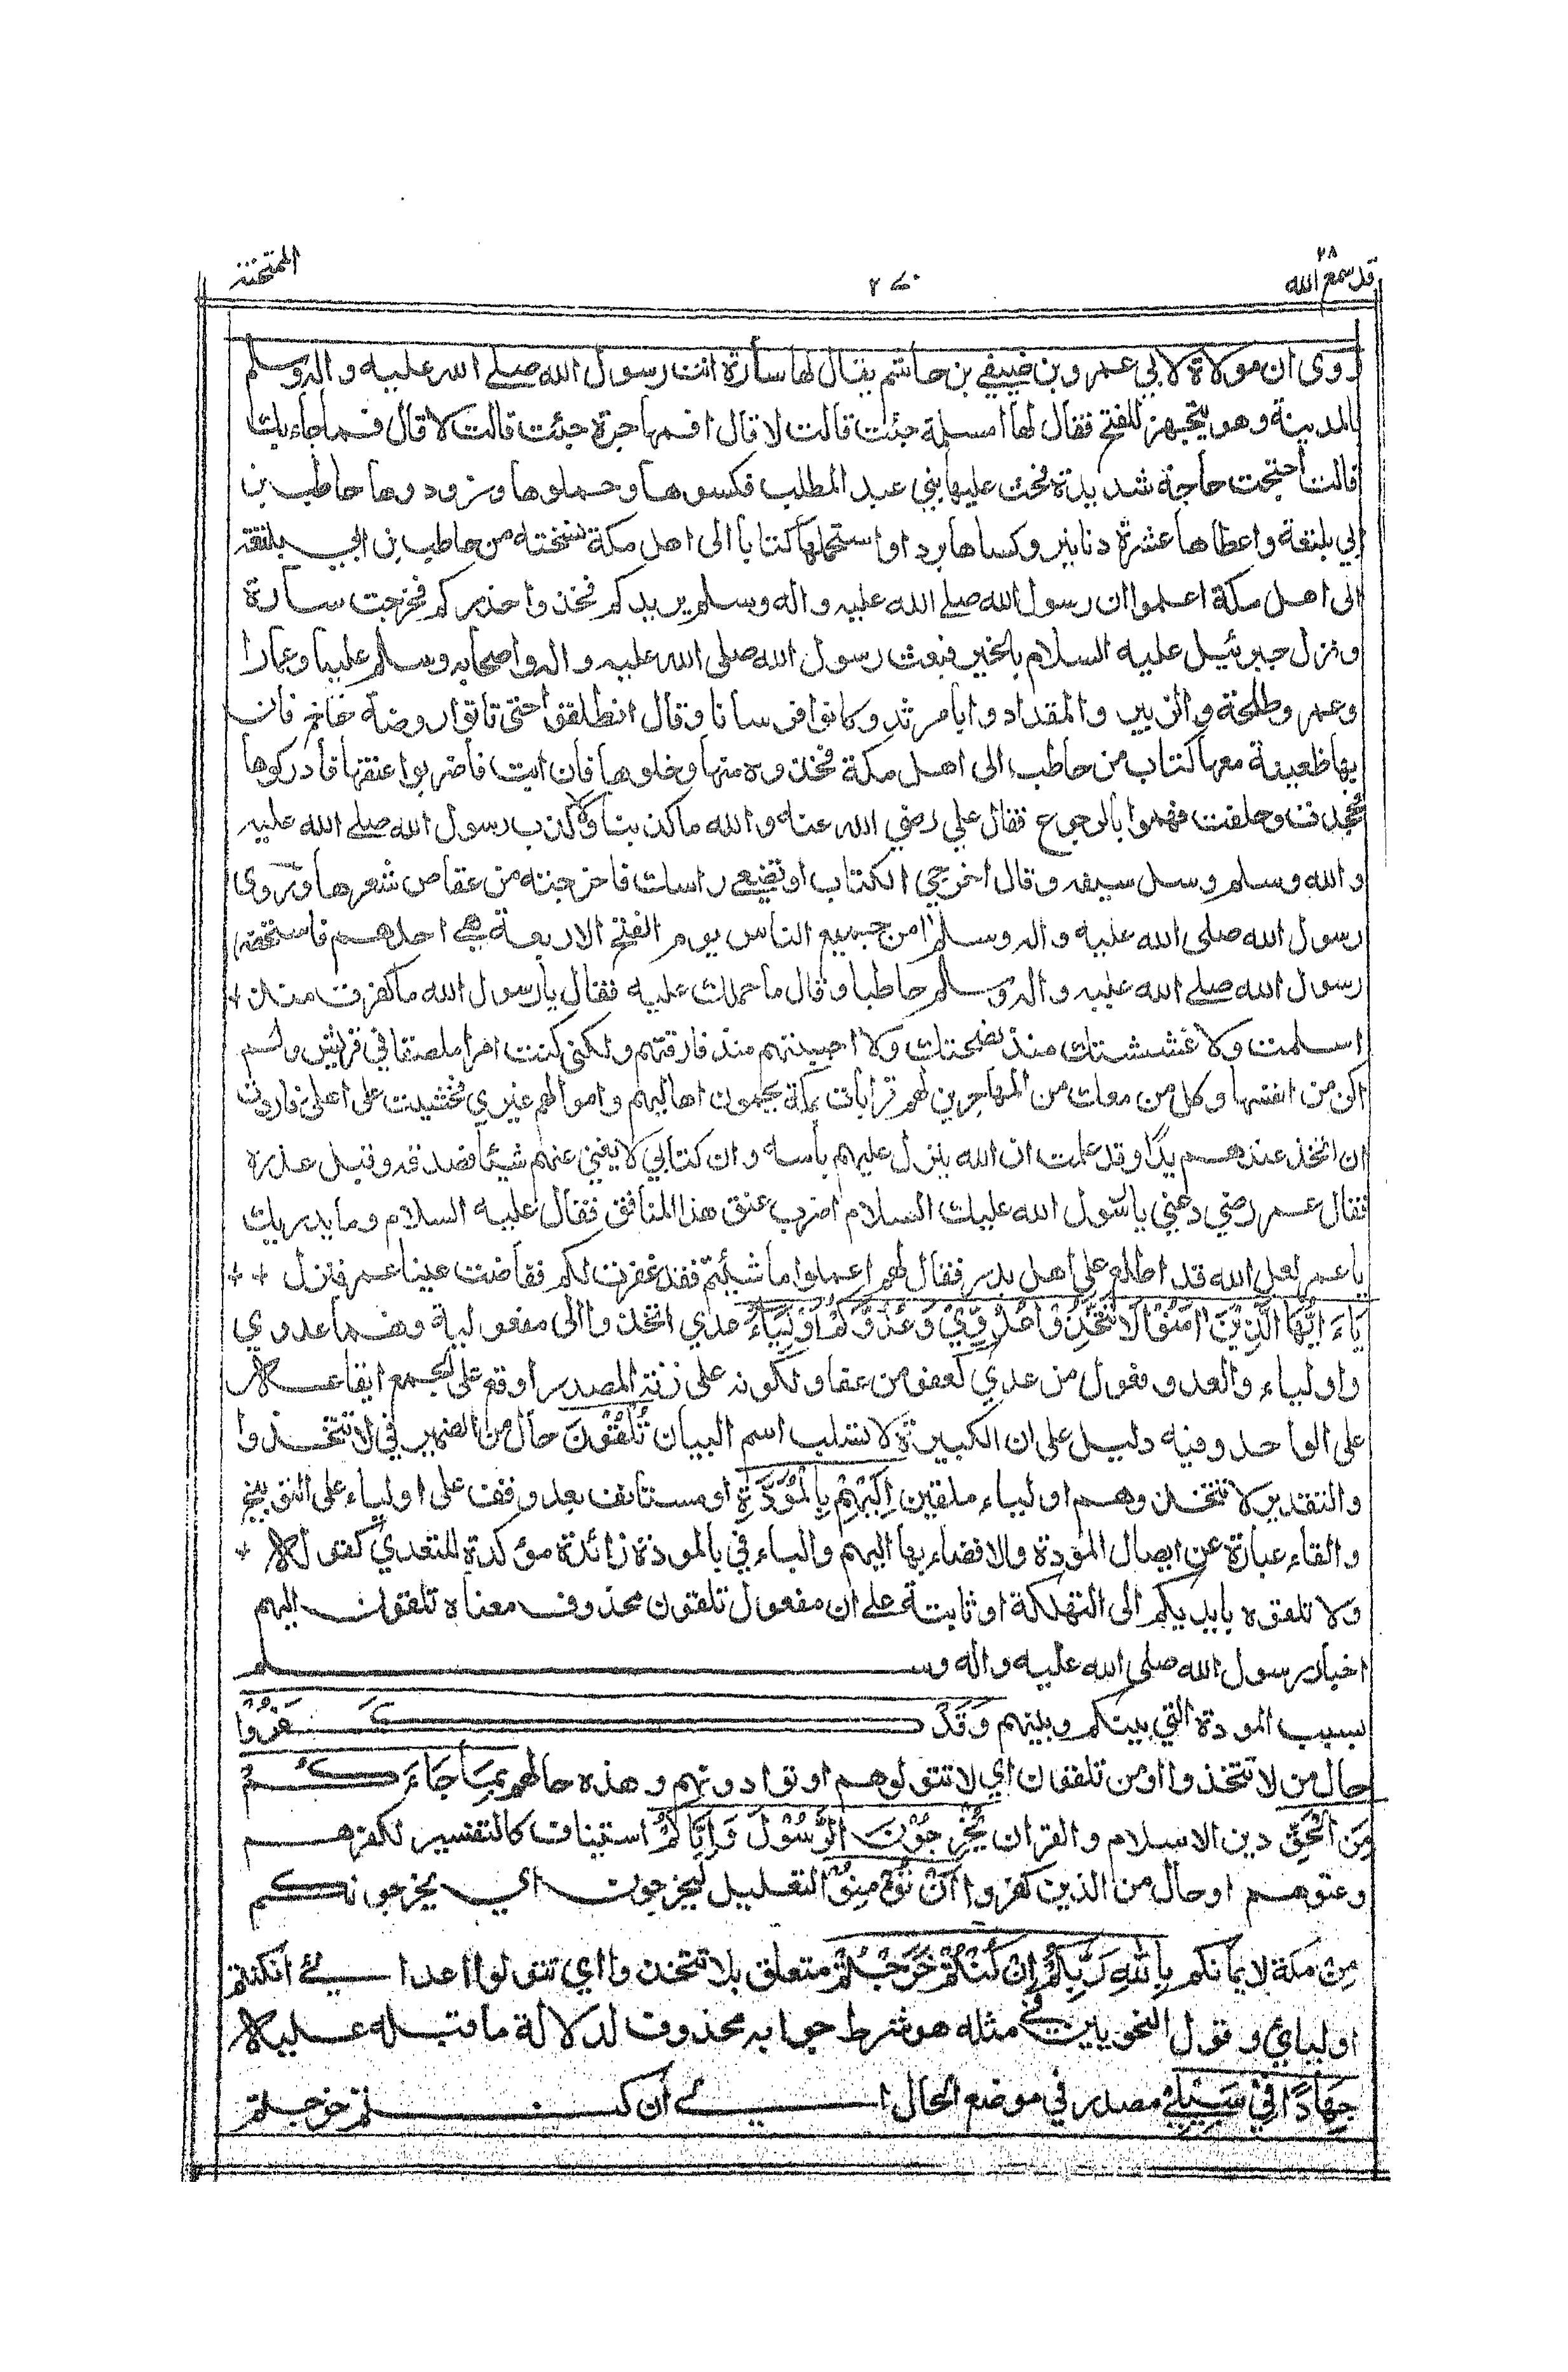 قد سمع الله ٢٨
٢٧٠
الممتحنة
روى ان مولاة لابي عمرو بن ضيفي بن هاشم يقال لها سارة اتت رسول الله صلى الله عليه واله وسلم
بالمدينة وهو يتجهز للفتح فقال لها امسلمة جئت قالت لا قال افمهاجرة جئت قالت لا قال فما جاء بك
قالت احتجت حاجة شديدة فحث عليها بني عبد المطلب فكسوها وحملوها وزودوها حاطب بن
ابي بلتعة واعطاها عشرة دنانير وكساها بردا واستحملها كتابا الى اهل مكة نسخته من حاطب بن ابي بلتعة
الى اهل مكة اعلموا ان رسول الله صلى الله عليه واله وسلم يريدكم فخذوا حذركم فخرجت سارة
ونزل جبرئيل عليه السلام بالخبر فبعث رسول الله صلى الله عليه واله واصحابه وسلم عليا وعمارا
وعمر وطلحة والزبير والمقداد وابا مرثد وكانوا فرسانا وقال انطلقوا حتى تاتوا روضة خاخ فان
بها ظعينة معها كتاب من حاطب الى اهل مكة فخذوه منها وخلوها فان ابت فاضربوا عنقها فادركوها
فجحدت وحلفت فهموا بالرجوع فقال علي رضي الله عنه والله ما كذبنا ولا كذب رسول الله صلى الله عليه
واله وسلم وسل سيفه وقال اخرجي الكتاب او تضعي راسك فاخرجته من عقاص شعرها وروى
رسول الله صلى الله عليه واله وسلم امن جميع الناس يوم الفتح الا اربعة هي احدهم فاستحضر
رسول الله صلى الله عليه واله وسلم حاطبا وقال ما حملك عليه فقال يا رسول الله ما كفرت منذ
اسلمت ولا غششتك منذ نصحتك ولا احببتهم منذ فارقتهم ولكني كنت امرا ملصقا في قريش ولم
اكن من انفسها وكل من معك من المهاجرين لهم قرابات بمكة يحمون اهاليهم واموالهم غيري فخشيت على اهلي فاردت
ان اتخذ عندهم يدا وقد علمت ان الله ينزل عليهم باسه وان كتابي لا يغني عنهم شيئا فصدقه وقبل عذره
فقال عمر رضي دعني يا رسول الله عليك السلام اضرب عنق هذا المنافق فقال عليه السلام وما يدريك
يا عمر لعل الله قد اطلع على اهل بدر فقال لهم اعملوا ما شئتم فقد غفرت لكم ففاضت عينا عمر فنزل
يَاءَ ايُّهَا الَّذِيْنَ امَنُوْا لَا تَتَّخِذُوْا عَدُوِّيْ وَعَدُوَّكُمْ اَوْلِيَاءَ عدي اتخذوا الى مفعوليه وهما عدوي
واولياء والعدو فعول من عدي كعفو من عفا ولكونه على زنة المصدر اوقع على الجمع ايقاعه
على الواحد وفيه دليل على ان الكبيرة لا تسلب اسم البيان تُلْقُوْنَ حال من الضمير في لا تتخذوا
والتقدير لا تتخذوهم اولياء ملقين اِلَيْهِمْ بِالْمَوَدَّةِ او مستانف بعد وقف على اولياء على التوبيخ
والقاء عبارة عن ايصال المودة والافضاء بها اليهم والباء في بالمودة زائدة مؤكدة للتعدي كقوله
ولا تلقوه بايديكم الى التهلكة او ثابتة على ان مفعول تلقون محذوف معناه تلقون اليهم
اخبار رسول الله صلى الله عليه واله وسلم
بسبب المودة التي بينكم وبينهم وَقَدْ كَفَرُوْا
حال من لا تتخذوا او من تلقون اي لا تتولوهم او توادونهم وهذه حالهم بِمَا جَاءَكُمْ
مِنَ الْحَقِّ دين الاسلام والقران يُخْرِجُوْنَ الرَّسُوْلَ وَاِيَّاكُمْ استيناف كالتفسير لكفرهم
وعتوهم او حال من الذين كفروا اَنْ تُؤْمِنُوْا التعليل ليخرجون اي يخرجونكم
من مكة لايمانكم بِاللهِ رَبِّكُمْ اِنْ كُنْتُمْ خَرَجْتُمْ متعلق بلا تتخذوا اي تتولوا اعدائي ان كنتم
اوليائي وقول النحويين في مثله هو شرط جوابه محذوف لدلالة ما قبله عليه
جِهَادًا فِيْ سَبِيْلِيْ مصدر في موضع الحال اي ان كنتم خرجتم